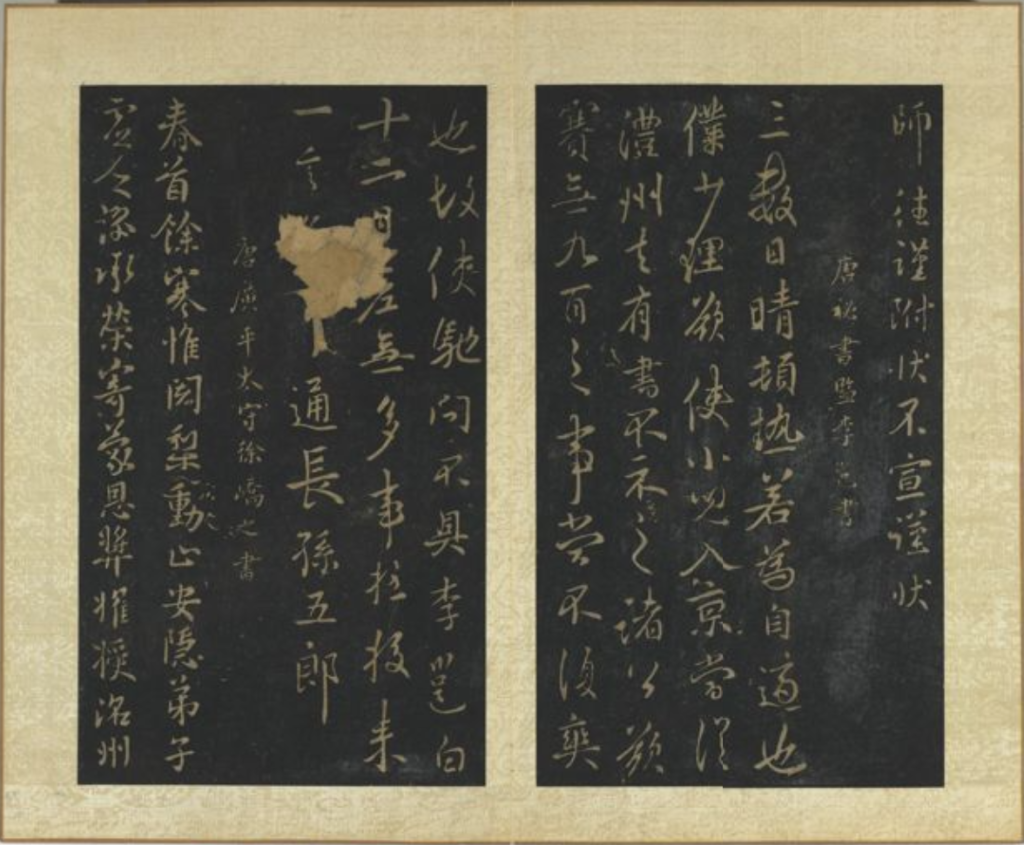 師往謹附状不宣謹状
唐秘書監李邕書
三數日晴頓熱若為自適也
僕少理欲使小兒入京當從
澧州去有書不示之諸公欲
賽無九百之事当不復奕
也故使馳問不具李邕白
十二日 無多事 來
一 通長孫五郎
唐廣平太守徐嶠之書
春首餘寒惟闍梨動止安隱弟子
虛乏謬承榮寄蒙恩 擢授洺州